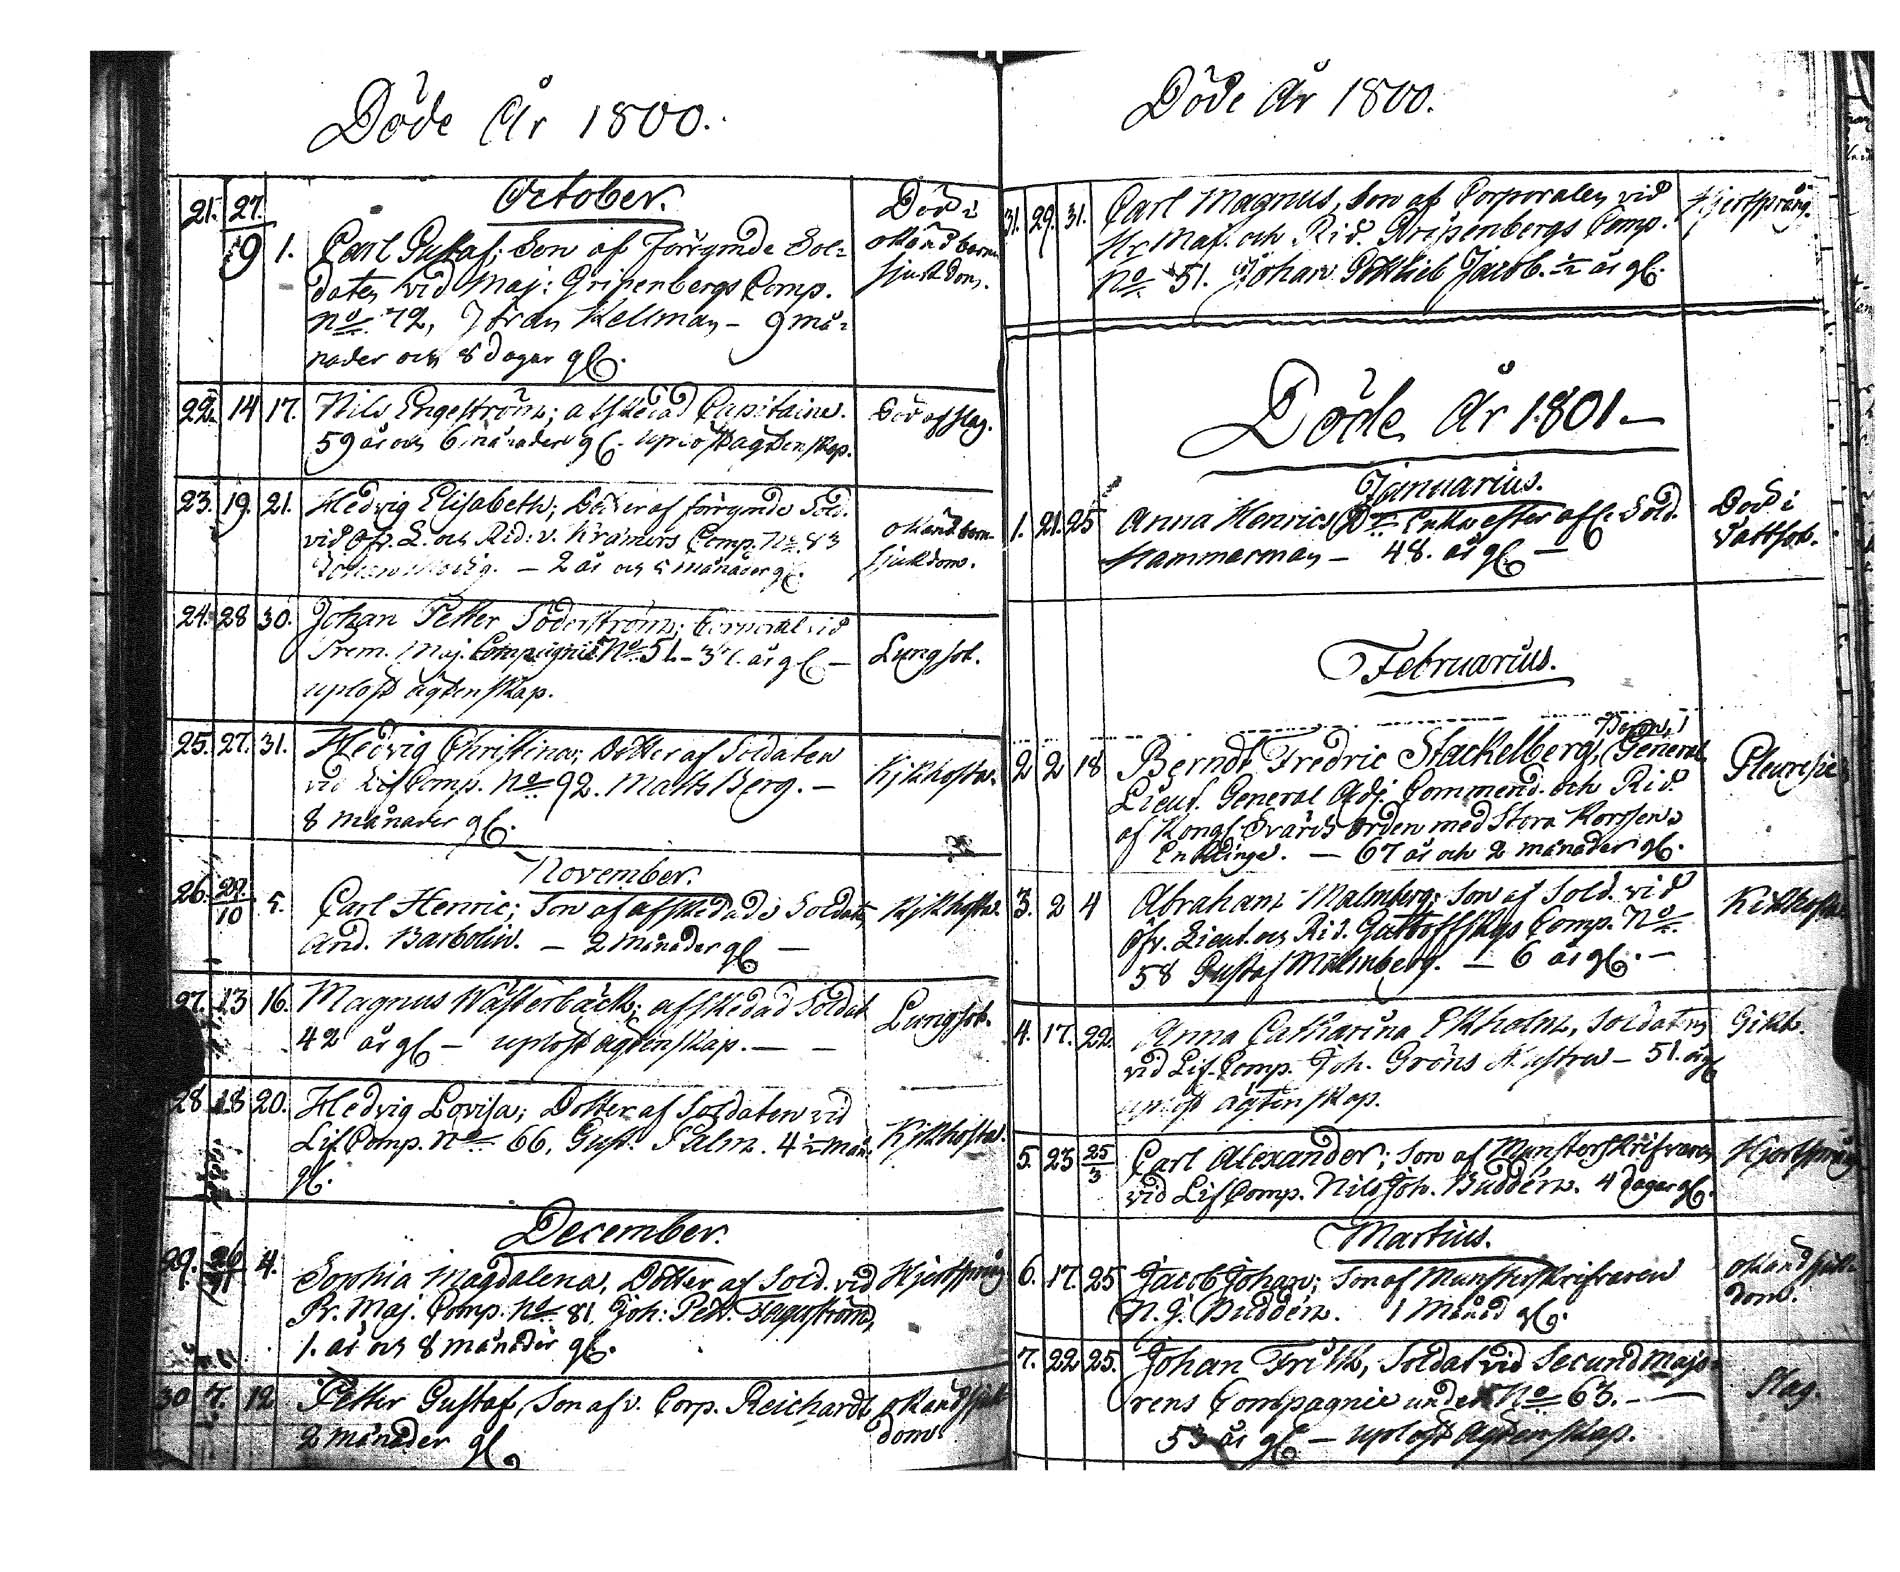 Döde År 1800.
October.
21. 27/9 1. Carl Gustaf; Son af förrymde Sol-
daten vid Maj: Gripenbergs Comp.
No 72, Jöran Kellman - 9 må-
nader och 8 dagar gl.
Död i
okänd barn
sjukdom.
22. 14 17. Nils Engeström; afskedad Capitaine.
59 år och 6 månader gl. uplöst ägtenskap.
Död af slag.
23. 19. 21. Hedvig Elisabeth; Dotter af förrymde Sold.
vid Öfv. L. och Rid: v. Kræmers Comp. No 83
- 2 år och 5 månader gl.
okänd barn-
sjukdom.
24. 28 30. Johan Petter Söderström; Corporal vid
Prem. Maj. Compagnie No 51. - år gl -
uplöst ägtenskap.
Lungsot.
25. 27. 31. Hedvig Christina; Dotter af Soldaten
vid Lif Comp. No 92. Matts Berg. -
8 månader gl.
Kikhosta.
November.
26. 29/10 5. Carl Henric; Son af afskedade Soldat
And. Barbolin. - 2 månader gl -
Kikhosta.
27. 13 16. Magnus Wästerbäck; afskedad Soldat
42 år gl - uplöst ägtenskap. - -
Lungsot.
28 18 20. Hedvig Lovisa; Dotter af Soldaten vid
Lif Comp. No 66. Gust. Palm. 4 1/2 mån.
gl.
Kikhosta.
December.
29. 26/11 4. Sophia Magdalena, Dotter af Sold. vid
Pr. Maj. Comp. No 81. Joh: Pett.
1. år och 8 månader gl.
Hjertsprång
30 7. 12 Petter Gustaf, Son af v. Corp. Reichardt
2 månader gl
okänd sjuk
dom
Döde År 1800.
31. 29. 31. Carl Magnus, Son af Corporalen vid
Hr Maj. och Rid. Gripenbergs Comp.
No 51. Johan Gottlieb Jacob. 1/2 år gl.
Hjertsprång.
Döde År 1801 -
Januarius.
1. 21. 25 Anna Henrics Dr Enka efter afl. Sold.
Hammerman - 48. år gl -
Död i
Vattsot.
Februarius.
Baron,
2 2 18 Berndt Fredric Stackelberg, General
Lieut. General Adj. Commend. och Rid.
af Kongl. Svärds Orden med Stora Korssen.
Enklinge. - 67 år och 2 månader gl.
Pleuresie
3. 2 4 Abraham Malmberg; Son af Sold. vid
Öfv. Lieut. och Rid. Comp. No
58 Gustaf Malmberg. - 6 år gl. -
Kikhosta.
4. 17. 22. Anna Catharina Ekholm, Soldaten
vid Lif. Comp. Joh. Gröns Hustru - 51. år gl
uplöst ägtenskap.
Gikt.
5. 23 25/3 Carl Alexander; Son af Munsterskrifvaren
vid Lif Comp. Nils Joh. Buddén. 4 dagar gl.
Hjertsprång
Martius.
6. 17. 25 Jacob Johan; Son af Munsterskrifvaren
N. J. Buddén. 1 Månad gl.
okänd sjuk-
dom.
7. 22 25. Johan Frisk, Soldat vid Secund Majo-
rens Compagnie under No 63. -
53 år gl - uplöst ägtenskap.
Slag.